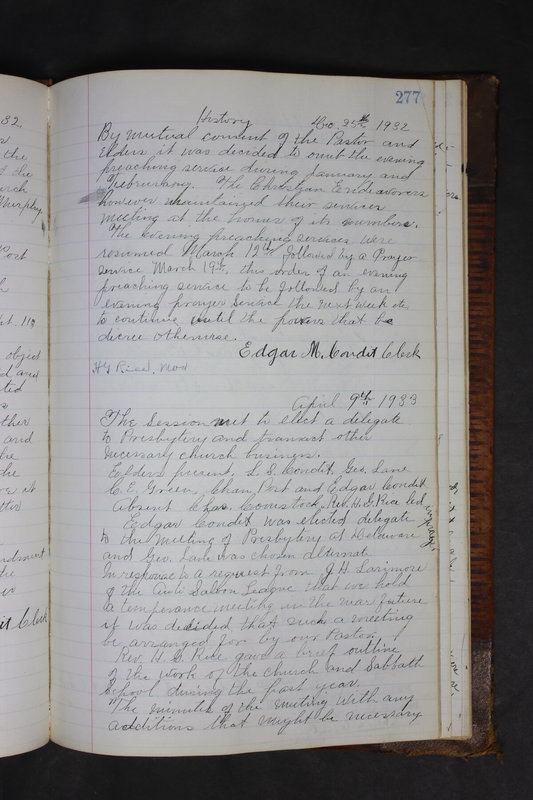 277
History Dec. 25th 1932
By mutual consent of the Pastor and
Elders it was decided to omit the evening
preaching service during January and
Februrary. The Christian Endeavorers
however maintained their services
meeting at the homes of its members.
The evening preaching services were
resumed March 12th followed by a Prayer
service March 19th, this order of an evening
preaching service to be followed by an
evening prayer service the next week etc.
to continue until the powers that be
decree otherwise.
Edgar M. Condit Clerk
H G Rice, Mod
April 9th 1933
The Session met to elect a delegate
to Presbytery and transact other
necessary church business.
Elders present, L. S. Condit, Geo. Lane
C. E. Green, Chan Port and Edgar Condit
Absent Chas. Comstock, Rev. H. G. Rice led
in prayer.
Edgar Condit was elected delegate
to the meeting of Presbytery at Delaware
and Geo. Lane was chosen alternate
In response to a request from J. H. Larimore
of the Anti Saloon League that we hold
a temperance meeting in the near future
it was decided that such a meeting
be arranged for by our Pastor.
Rev. H. G. Rice gave a brief outline
of the work of the church and Sabbath
School during the past year.
The minutes of the meeting with any
additions that might be necessary